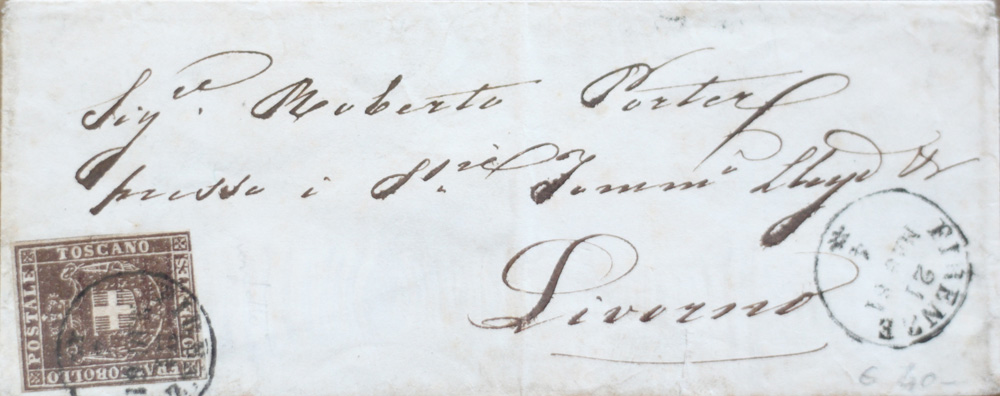 Sig.r Roberto Porter
presso i S.ri Tomm.o Lloyd &
Livorno
TOSCANO
POSTALE
FRANCOBOLLO
FIRENZE
21
61
4
6 40-